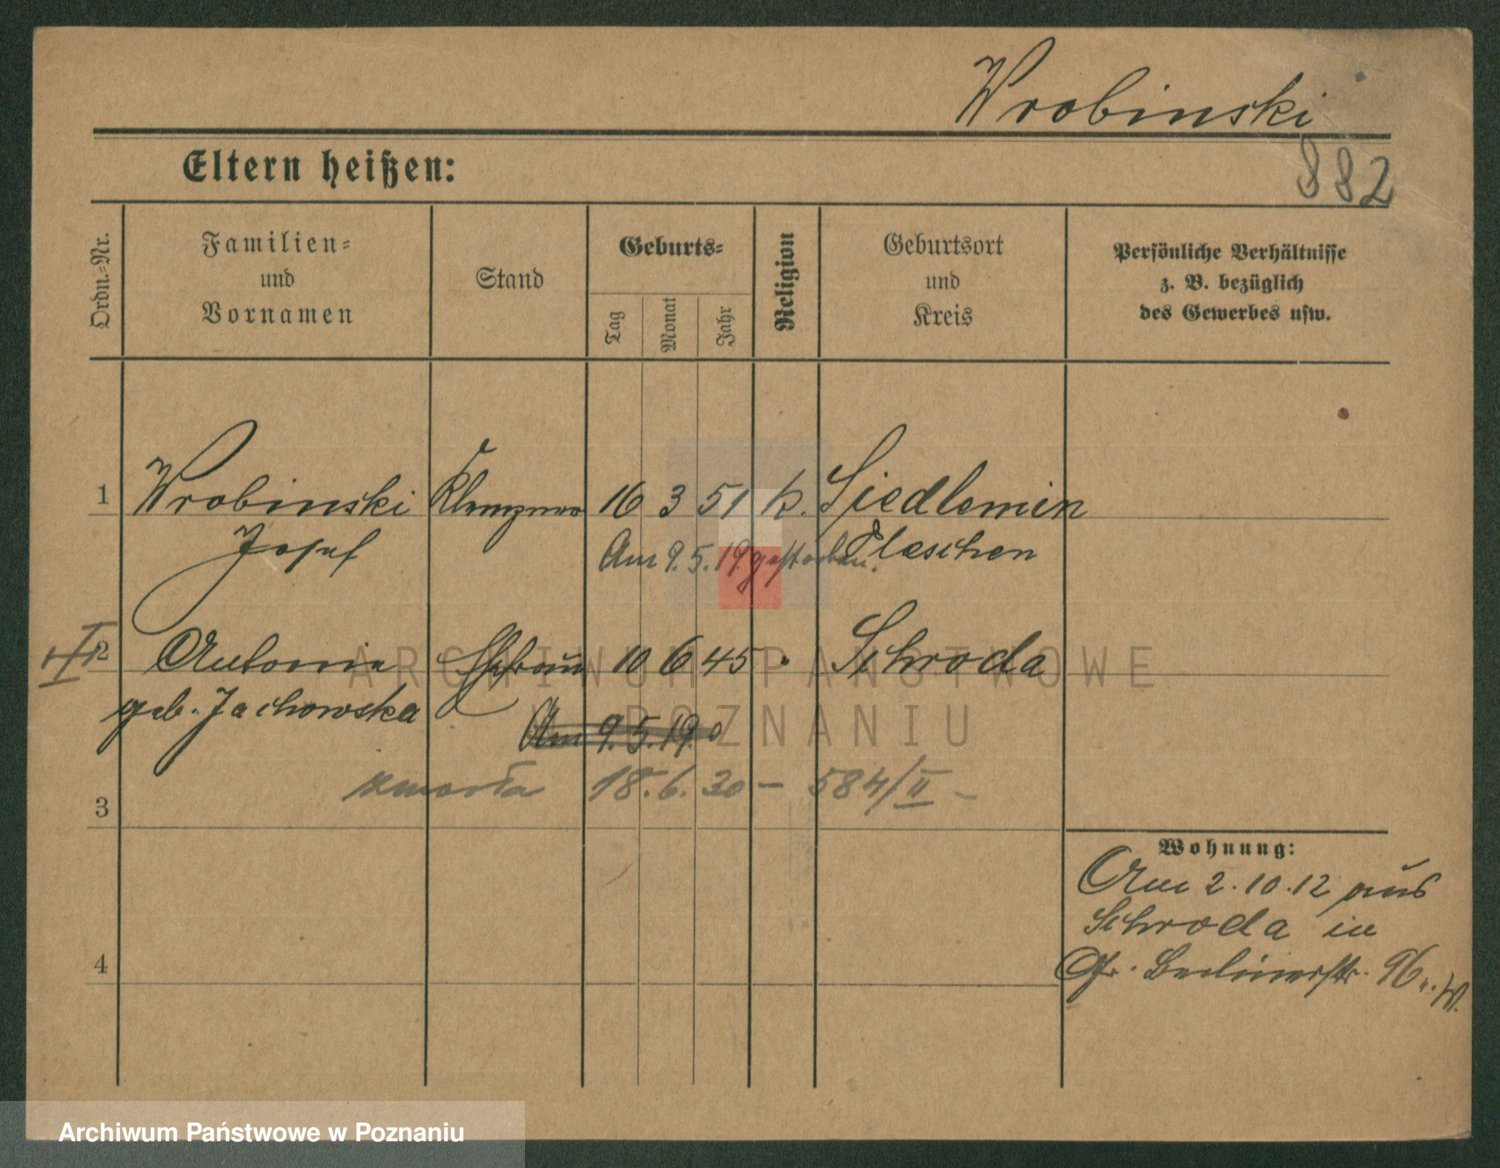 Wrobinski
882
Eltern heißen:
Ordn.-Nr.
Familien-
und
Vornamen
Stand
Geburts-
Tag
Monat
Jahr
Religion
Geburtsort
und
Kreis
Persönliche Verhältnisse
z. B. bezüglich
des Gewerbes usw.
1 Wrobinski Klempner 16 3 51 k. Siedlemin
Josef Am 9.5.19. gestorben. Pleschen
2 Antonie Ehefrau 10 6 45 Schroda
geb. Jachowska Am 9.5.19
zmarła 18.6.30 – 584/II –
3
Wohnung:
Am 2.10.12 aus
Schroda in
4
Berlinerstr. 96
ARCHIWUM PAŃSTWOWE
POZNANIU
Archiwum Państwowe w Poznaniu